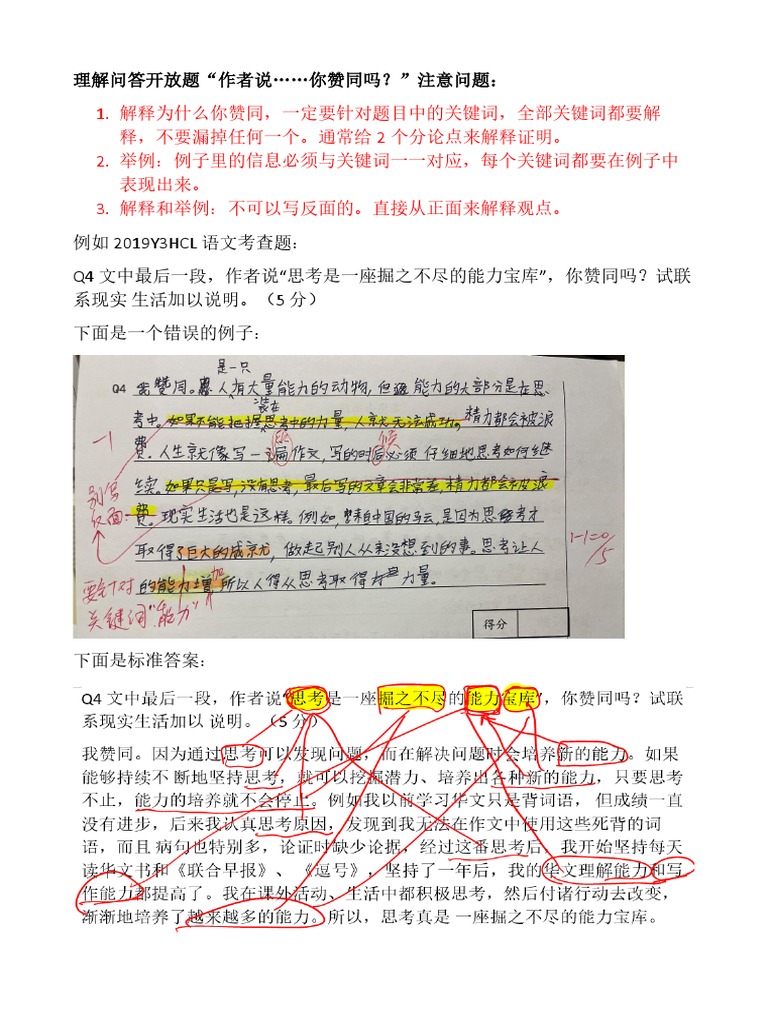 理解问答开放题“作者说……你赞同吗？”注意问题：
1. 解释为什么你赞同，一定要针对题目中的关键词，全部关键词都要解
释，不要漏掉任何一个。通常给 2 个分论点来解释证明。
2. 举例：例子里的信息必须与关键词一一对应，每个关键词都要在例子中
表现出来。
3. 解释和举例：不可以写反面的。直接从正面来解释观点。
例如 2019Y3HCL 语文考查题：
Q4 文中最后一段，作者说“思考是一座掘之不尽的能力宝库”，你赞同吗？试联
系现实 生活加以说明。（5 分）
下面是一个错误的例子：
是一只
Q4 我赞同。人有大量能力的动物，但 能力的大部分是在思
装在
考中。如果不能把握思考中的力量，人就无法成功，精力都会被浪
费。人生就像写一篇作文，写的时候必须仔细地思考如何继
续。如果只是写，没有思考，最后写的文章会非常差，精力都会被浪
费。现实生活也是这样。例如，来自中国的马云，是因为思考才
取得了巨大的成就，做起别人从来没想到的事。思考让人
的能力增加，所以人得从思考取得力量。
-1
别写
反面
要针对
关键词“能力”
1-1=0/5
得分
下面是标准答案：
Q4 文中最后一段，作者说“思考是一座掘之不尽的能力宝库”，你赞同吗？试联
系现实生活加以 说明。（5 分）
我赞同。因为通过思考可以发现问题，而在解决问题时会培养新的能力。如果
能够持续不 断地坚持思考，就可以挖掘潜力、培养出各种新的能力，只要思考
不止，能力的培养就不会停止。例如我以前学习华文只是背词语， 但成绩一直
没有进步，后来我认真思考原因，发现到我无法在作文中使用这些死背的词
语，而且 病句也特别多，论证时缺少论据，经过这番思考后，我开始坚持每天
读华文书和《联合早报》、《逗号》，坚持了一年后，我的华文理解能力和写
作能力都提高了。我在课外活动、生活中都积极思考，然后付诸行动去改变，
渐渐地培养了越来越多的能力。所以，思考真是 一座掘之不尽的能力宝库。